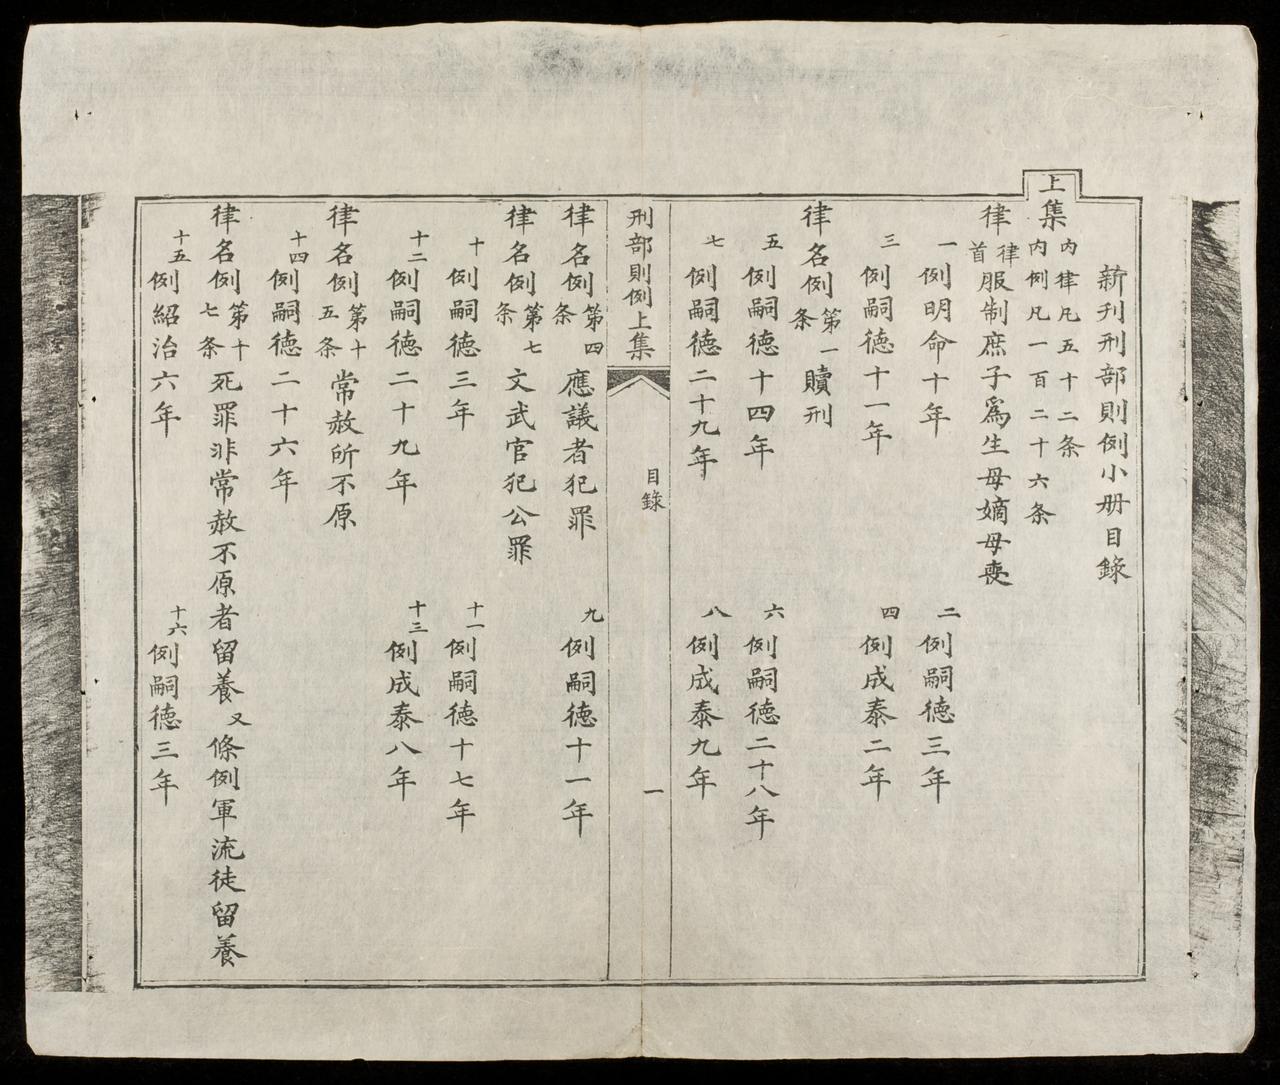 新刊刑部則例小册目錄
上集
内律凡五十二条
内例凡一百二十六条
律律首服制庶子爲生母嫡母喪
一例明命十年
二例嗣德三年
三例嗣德十一年
四例成泰二年
律名例第一条贖刑
五例嗣德十四年
六例嗣德二十八年
七例嗣德二十九年
八例成泰九年
刑部則例上集
目錄
一
律名例第四条應議者犯罪
九例嗣德十一年
律名例第七条文武官犯公罪
十例嗣德三年
十一例嗣德十七年
十二例嗣德二十九年
十三例成泰八年
律名例第十五条常赦所不原
十四例嗣德二十六年
律名例第十七条死罪非常赦不原者留養又條例軍流徒留養
十五例紹治六年
十六例嗣德三年